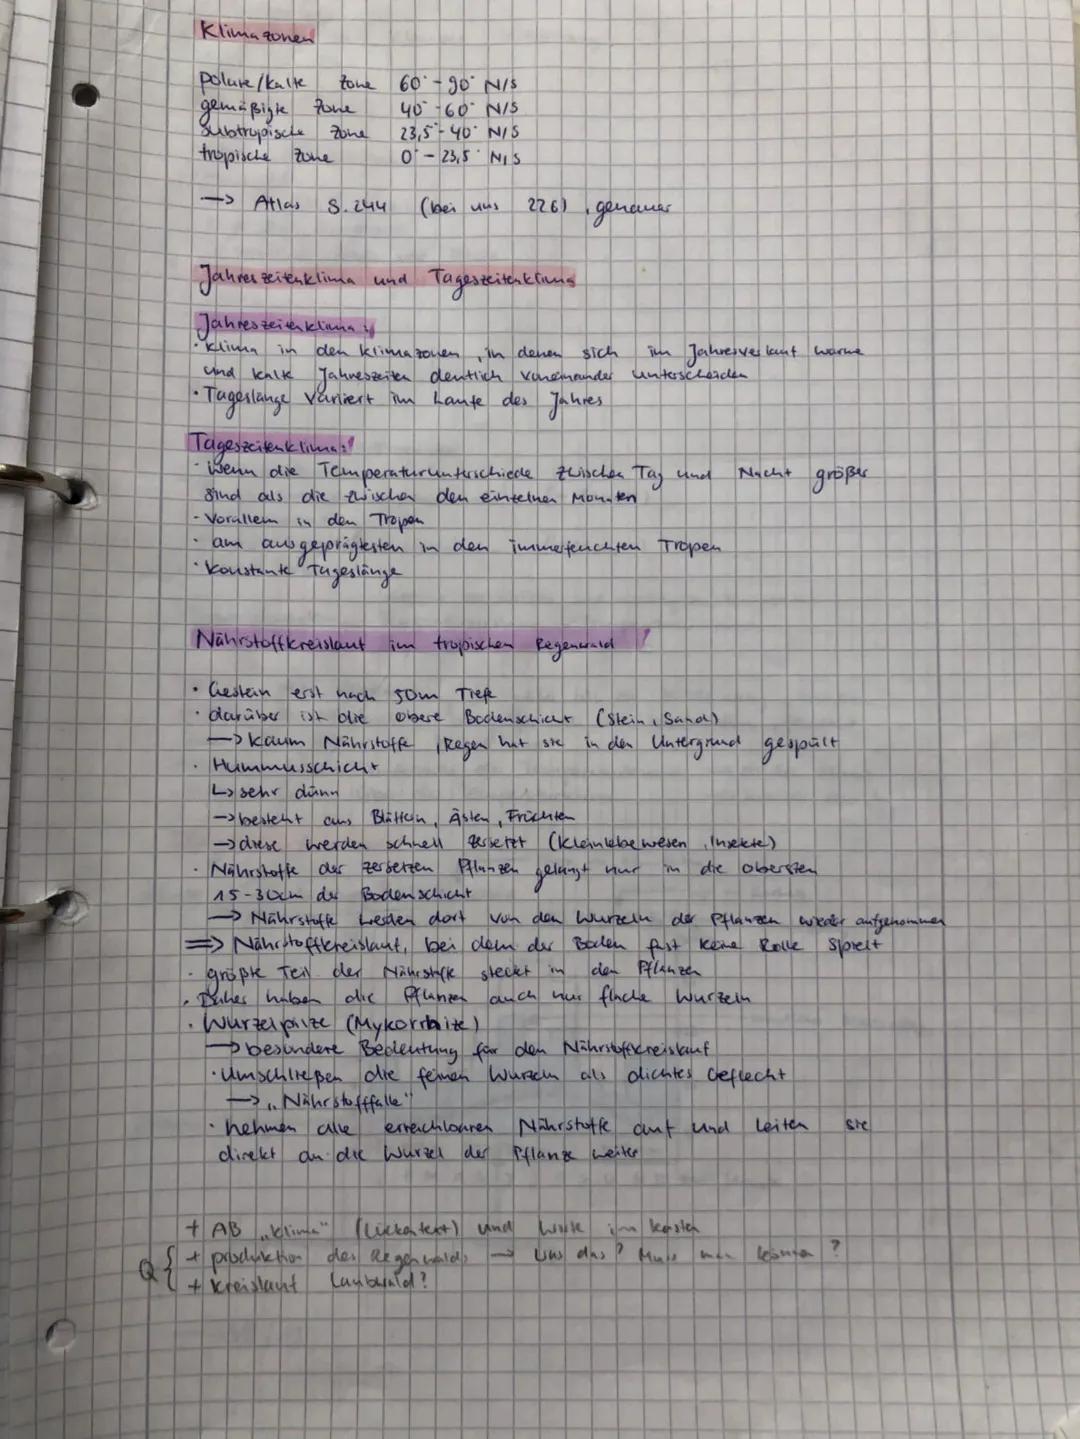 Klimazonen
polare/kalte Zone 60° - 90° N/S
gemäßigte Zone 40° - 60° N/S
subtropische Zone 23,5° - 40° N/S
tropische Zone 0° - 23,5° N/S
→ Atlas S. 244 (bei uns 226), genauer
Jahreszeitenklima und Tageszeitenklima
Jahreszeitenklima:
· Klima in den Klimazonen, in denen sich im Jahresverlauf warme
und kalte Jahreszeiten deutlich voneinander unterscheiden
· Tageslänge variiert im Laufe des Jahres
Tageszeitenklima:
· wenn die Temperaturunterschiede zwischen Tag und Nacht größer
sind als die zwischen den einzelnen Monaten
- Vorallem in den Tropen
· am ausgeprägtesten in den immerfeuchten Tropen
· konstante Tageslänge
Nährstoffkreislauf im tropischen Regenwald
· Gestein erst nach 50m Tiefe
· darüber ist die obere Bodenschicht (Stein, Sand)
→ kaum Nährstoffe, Regen hat sie in den Untergrund gespült
· Hummusschicht
↳ sehr dünn
→ besteht aus Blättern, Ästen, Früchten
→ diese werden schnell zersetzt (Kleinlebewesen, Insekte)
· Nährstoffe der zersetzen Pflanzen gelangt nur in die obersten
15-30cm der Bodenschicht
→ Nährstoffe werden dort von den Wurzeln der Pflanzen wieder aufgenommen
⇒ Nährstoffkreislauf, bei dem der Boden fast keine Rolle spielt
· größte Teil der Nährstoffe steckt in den Pflanzen
· Daher haben die Pflanzen auch nur flache Wurzeln
· Wurzelpilze (Mykorrhize)
→ besondere Bedeutung für den Nährstoffkreislauf
· Umschließen die feinen Wurzeln als dichtes Geflecht
→ „Nährstofffalle"
· nehmen alle erreichbaren Nährstoffe auf und leiten sie
direkt an die Wurzel der Pflanze weiter
+ AB „Klima" (Lückentext) und Worte im Kasten
Q { + produktion des Regenwalds → Was das? Muss man können?
+ Kreislauf Laubwald?